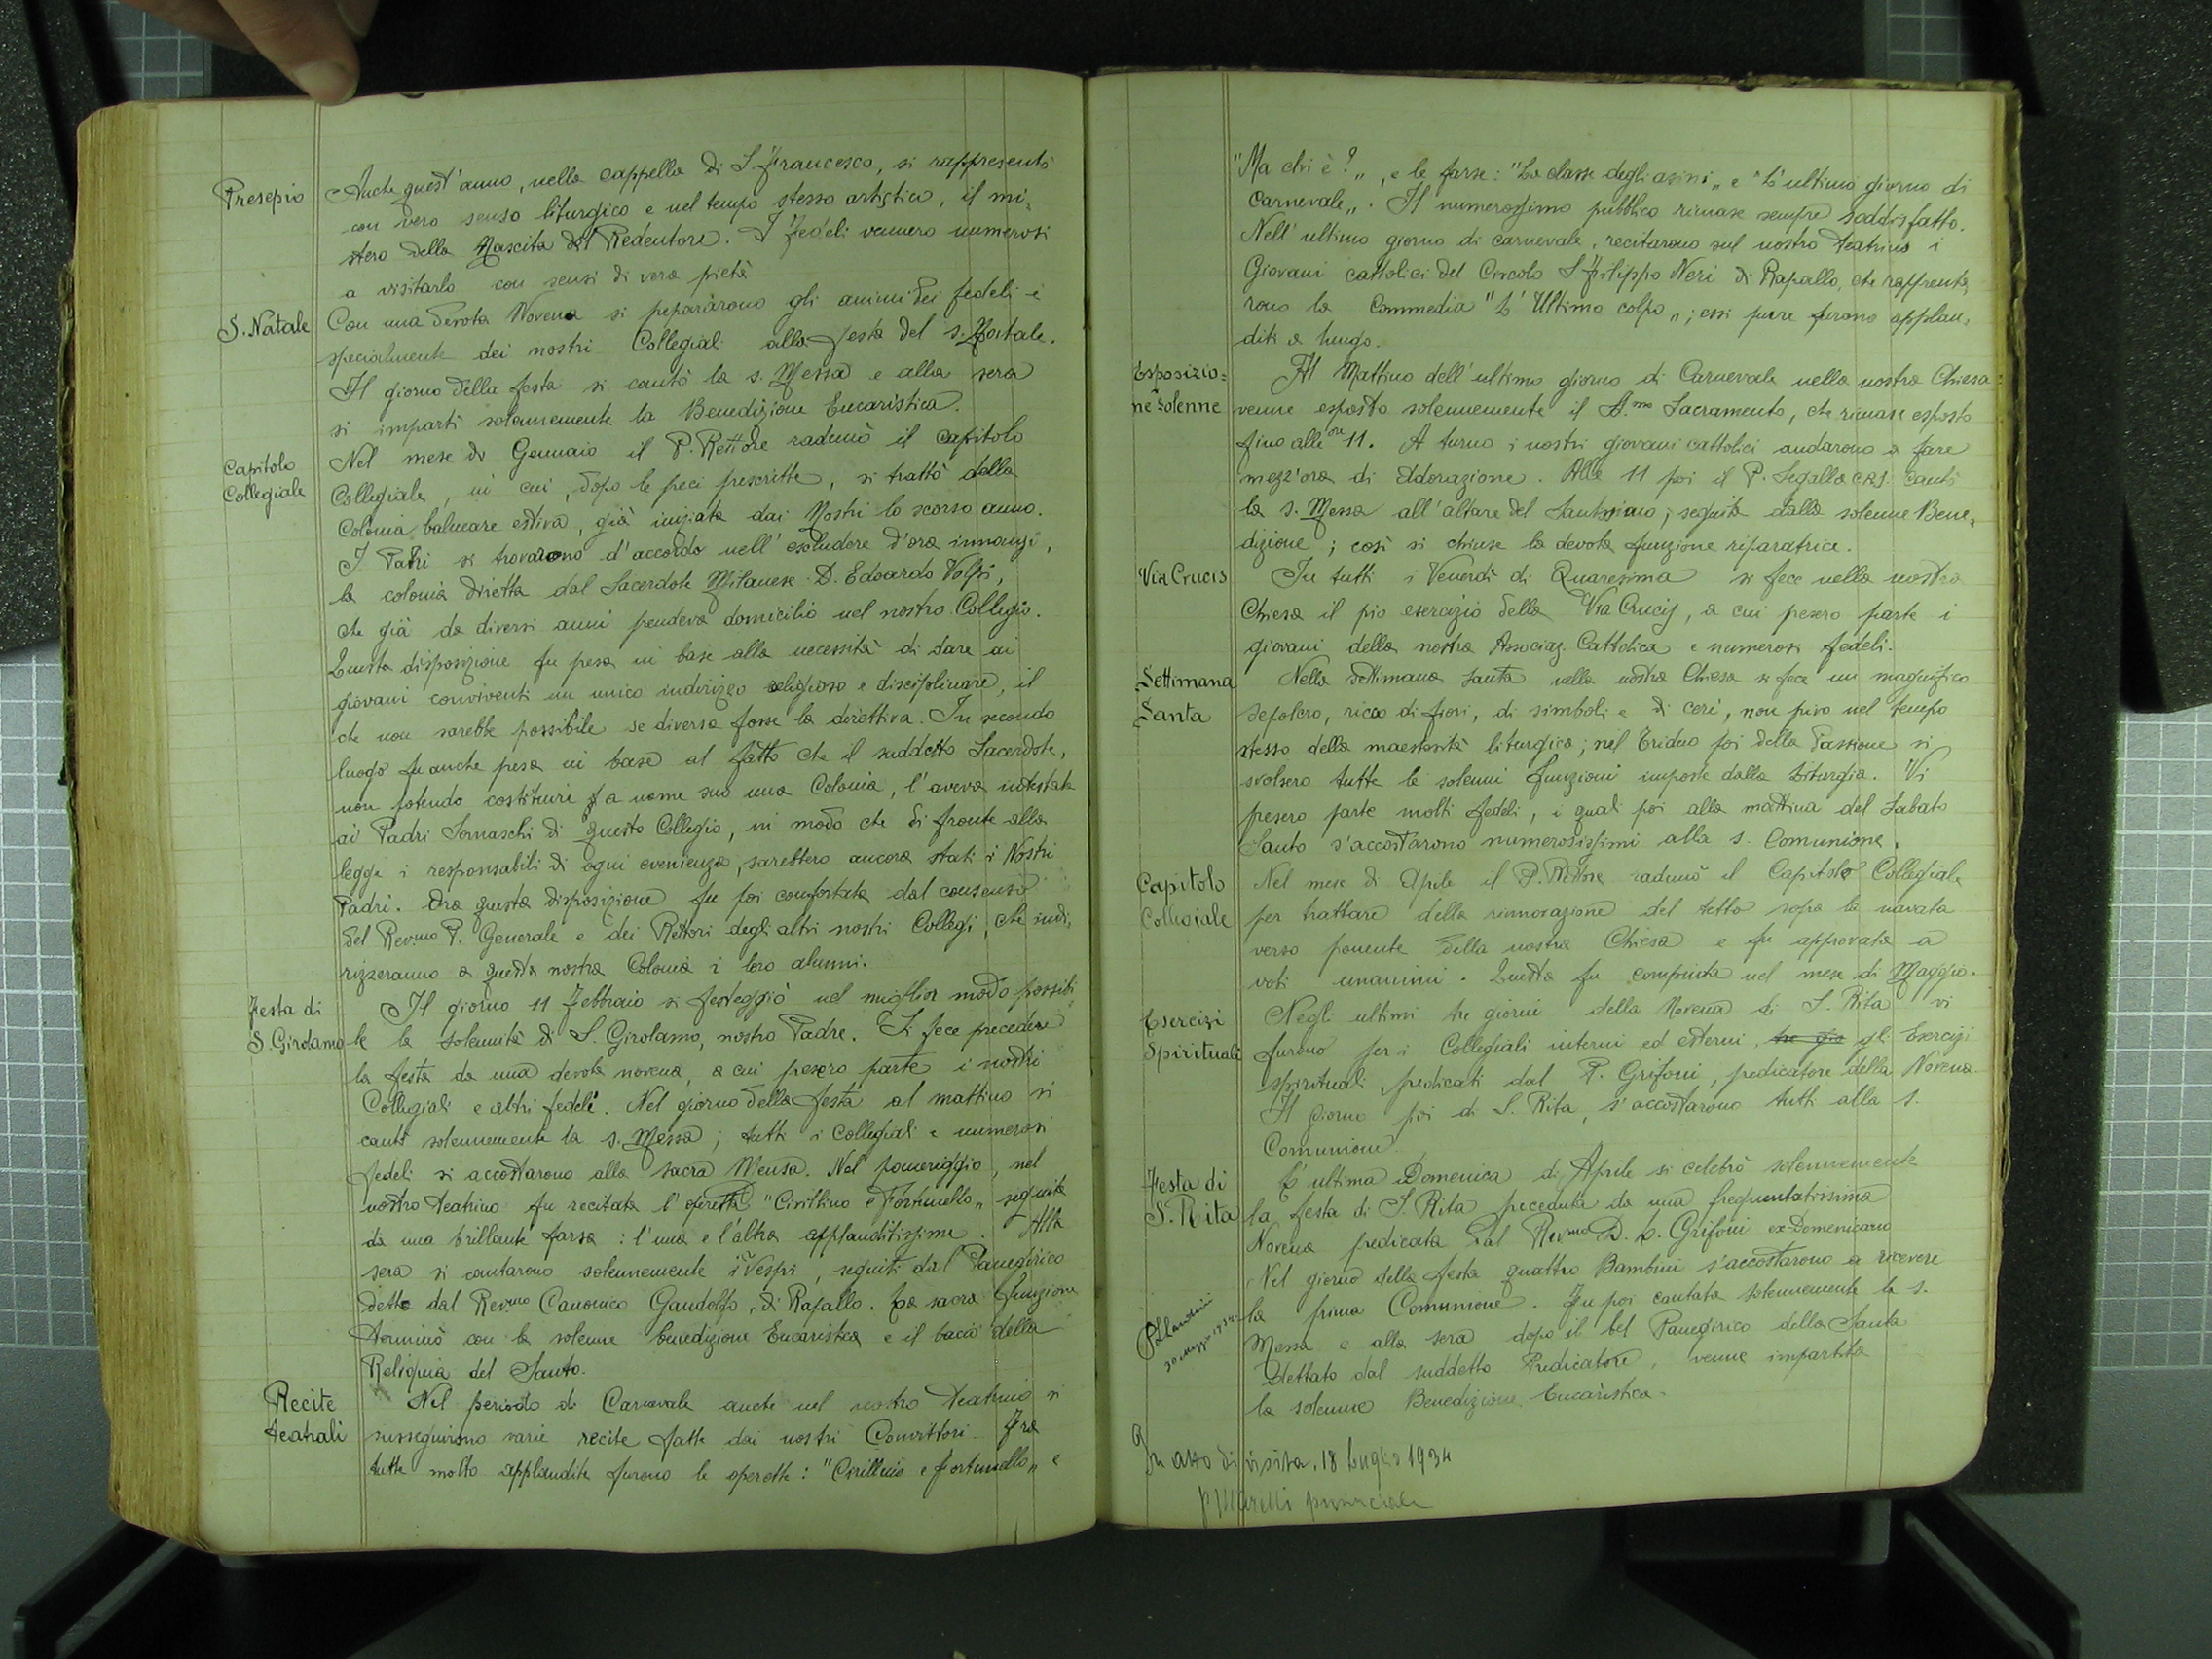 Presepio
Anche quest'anno, nella cappella di S. Francesco, si rappresentò
con vero senso liturgico e nel tempo stesso artistico, il mi=
stero della Nascita del Redentore. I Fedeli vennero numerosi
a visitarlo con sensi di vera pietà
S. Natale
Con una devota Novena si prepararono gli animi dei fedeli e
specialmente dei nostri Collegiali alla festa del s. Natale.
Il giorno della festa si cantò la s. Messa e alla sera
si impartì solennemente la Benedizione Eucaristica.
Capitolo
Collegiale
Nel mese di Gennaio il P. Rettore radunò il capitolo
Collegiale, in cui, dopo le preci prescritte, si trattò della
Colonia balneare estiva, già iniziata dai Nostri lo scorso anno.
I Padri si trovarono d'accordo nell'escludere d'ora innanzi,
la colonia diretta dal Sacerdote Milanese D. Edoardo Volpi,
che già da diversi anni prendeva domicilio nel nostro Collegio.
Questa disposizione fu presa in base alla necessità di dare ai
giovani conviventi un unico indirizzo religioso e disciplinare, il
che non sarebbe possibile se diversa fosse la direttiva. In secondo
luogo fu anche presa in base al fatto che il suddetto Sacerdote,
non potendo costituire a nome suo una Colonia, l'aveva intestata
ai Padri Somaschi di questo Collegio, in modo che di fronte alla
legge i responsabili di ogni evenienza, sarebbero ancora stati i Nostri
Padri. Ora questa disposizione fu poi confortata dal consenso
del Rev.mo P. Generale e dei Rettori degli altri nostri Collegi, che indi=
rizzeranno a questa nostra Colonia i loro alunni.
Festa di
S. Girolamo
Il giorno 11 Febbraio si festeggiò nel miglior modo possibi=
le la solennità di S. Girolamo, nostro Padre. Si fece precedere
la festa da una devota novena, a cui presero parte i nostri
Collegiali e altri fedeli. Nel giorno della festa al mattino si
cantò solennemente la s. Messa; tutti i Collegiali e numerosi
fedeli si accostarono alla sacra Mensa. Nel pomeriggio, nel
nostro teatrino fu recitata l'operetta "Cirillino e Fortunello" seguita
da una brillante farsa: l'una e l'altra applauditissime. Alla
sera si cantarono solennemente i Vespri, seguiti dal Panegirico
detto dal Rev.mo Canonico Gandolfo, di Rapallo. La sacra funzione
terminò con la solenne benedizione Eucaristica e il bacio della
Reliquia del Santo.
Recite
teatrali
Nel periodo di Carnevale anche nel nostro teatrino si
susseguirono varie recite fatte dai nostri Convittori. Fra
tutte molto applaudite furono le operette: "Cirillino e Fortunello" e
"Ma chi è?", e le farse: "La classe degli asini" e "L'ultimo giorno di
Carnevale". Il numerosissimo pubblico rimase sempre soddisfatto.
Nell'ultimo giorno di carnevale, recitarono sul nostro teatrino i
Giovani cattolici del Circolo S. Filippo Neri di Rapallo, che rappresenta
rono la Commedia "L'Ultimo colpo"; essi pure furono applau=
diti a lungo.
Esposizio=
ne solenne
Al Mattino dell'ultimo giorno di Carnevale nella nostra Chiesa
venne esposto solennemente il S.mo Sacramento, che rimase esposto
fino alle ore 11. A turno i nostri giovani cattolici andarono a fare
mezz'ora di Adorazione. Alle 11 poi il P. Segalla CRS. cantò
la s. Messa all'altare del Santissimo; seguita dalla solenne Bene=
dizione; così si chiuse la devota funzione riparatrice.
Via Crucis
In tutti i Venerdì di Quaresima si fece nella nostra
Chiesa il pio esercizio della Via Crucis, a cui presero parte i
giovani della nostra Associaz. Cattolica e numerosi fedeli.
Settimana
Santa
Nella settimana santa nella nostra Chiesa si fece un magnifico
sepolcro, ricco di fiori, di simboli e di ceri, non privo nel tempo
stesso della maestosità liturgica; nel Triduo poi della Passione si
svolsero tutte le solenni funzioni imposte dalla Liturgia. Vi
presero parte molti fedeli, i quali poi alla mattina del Sabato
Santo s'accostarono numerosissimi alla s. Comunione.
Capitolo
Collegiale
Nel mese di Aprile il P. Rettore radunò il Capitolo Collegiale
per trattare della rinnovazione del tetto sopra la navata
verso ponente della nostra Chiesa e fu approvata a
voti unanimi. Questa fu compiuta nel mese di Maggio.
Esercizi
Spirituali
Negli ultimi tre giorni della Novena di S. Rita vi
furono per i Collegiali interni ed esterni, tre gio gli Esercizi
spirituali predicati dal P. Grifoni, predicatore della Novena.
Il giorno poi di S. Rita, s'accostarono tutti alla s.
Comunione.
Festa di
S. Rita
L'ultima Domenica di Aprile si celebrò solennemente
la festa di S. Rita preceduta da una frequentatissima
Novena predicata dal Rev.mo D. L. Grifoni ex-Domenicano
Nel giorno della festa quattro Bambini s'accostarono a ricevere
la prima Comunione. Fu poi cantata solennemente la s.
Messa e alla sera dopo il bel Panegirico della Santa
dettato dal suddetto Predicatore, venne impartita
la solenne Benedizione Eucaristica.
1934
In atto di visita. 18 Luglio 1934
provinciale